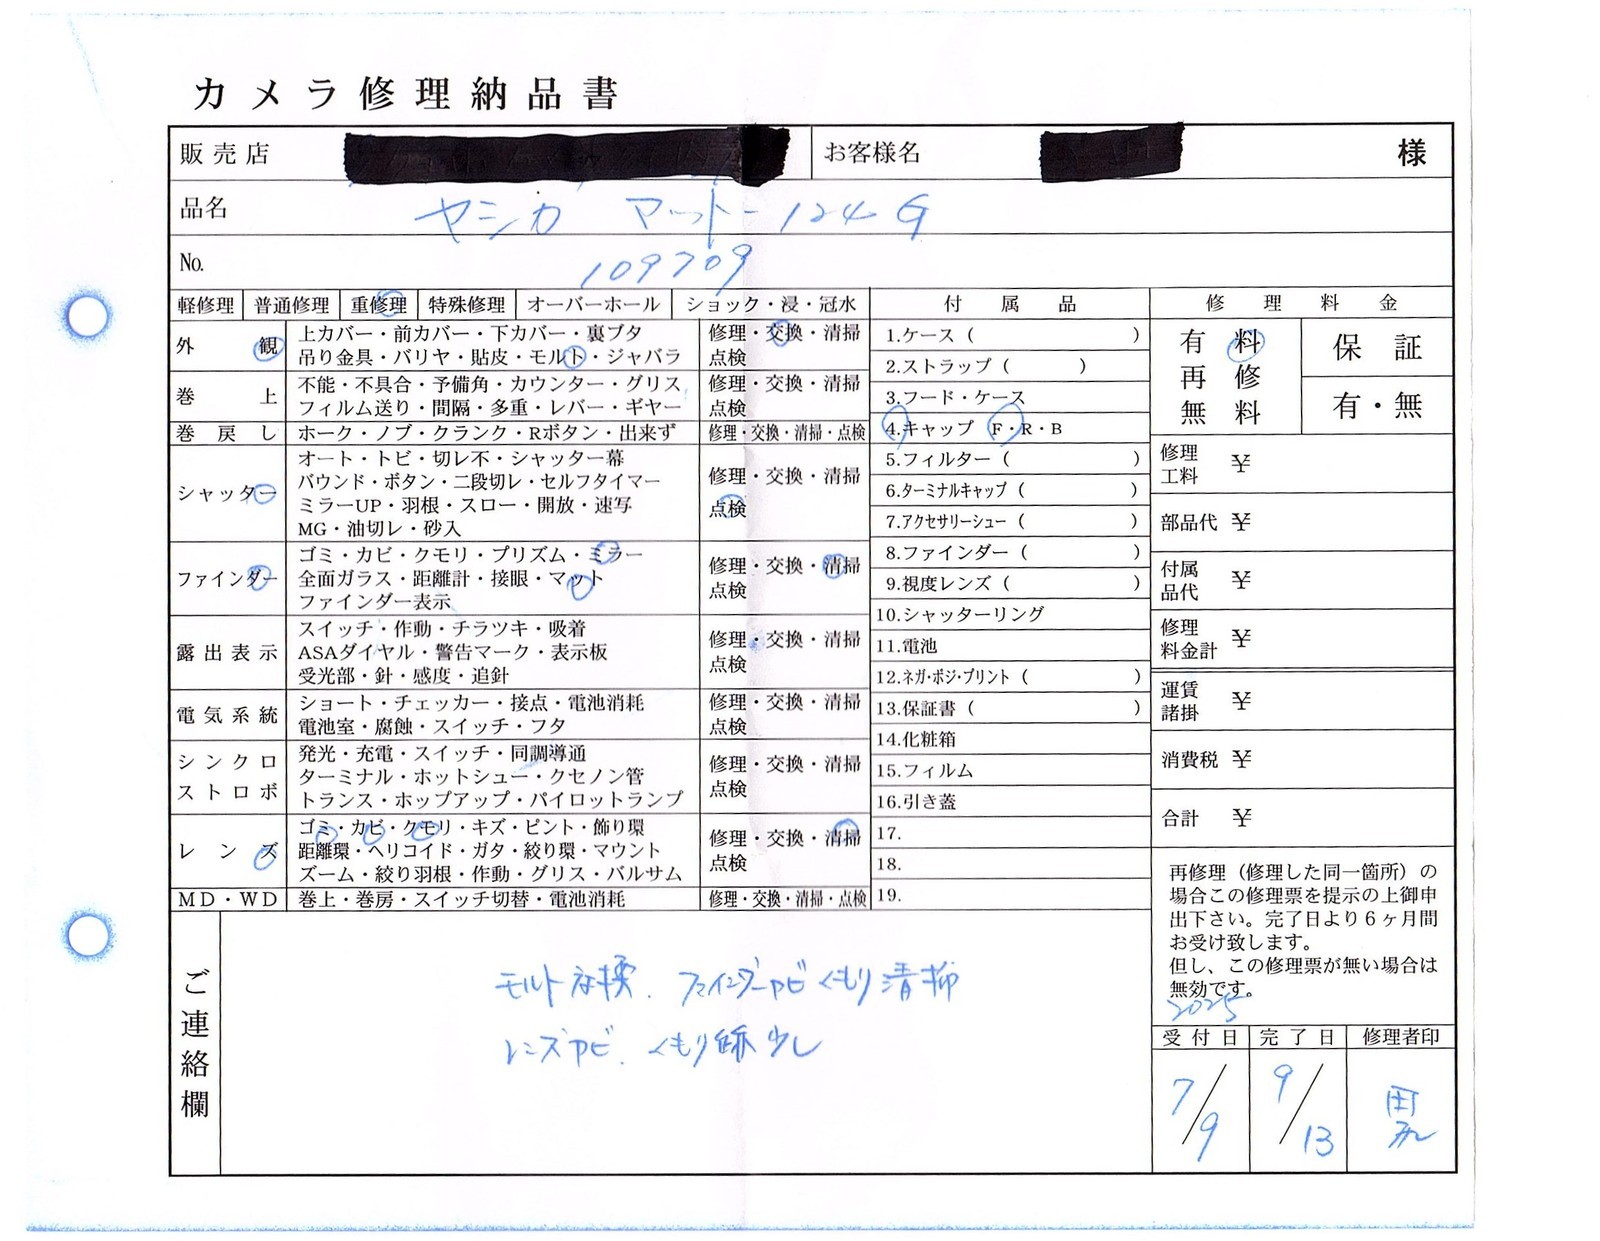 カメラ修理納品書
販売店 お客様名 様
品名 ヤシカ マット-124G
No. 109709
軽修理 普通修理 重修理 特殊修理 オーバーホール ショック・浸・冠水
外観 上カバー・前カバー・下カバー・裏ブタ 修理・交換・清掃
吊り金具・バリヤ・貼皮・モルト・ジャバラ 点検
巻上 不能・不具合・予備角・カウンター・グリス 修理・交換・清掃
フィルム送り・間隔・多重・レバー・ギヤー 点検
巻戻し ホーク・ノブ・クランク・Rボタン・出来ず 修理・交換・清掃・点検
シャッター オート・トビ・切レ不・シャッター幕 修理・交換・清掃
バウンド・ボタン・二段切レ・セルフタイマー
ミラーUP・羽根・スロー・開放・速写 点検
MG・油切レ・砂入
ファインダー ゴミ・カビ・クモリ・プリズム・ミラー 修理・交換・清掃
全面ガラス・距離計・接眼・マット 点検
ファインダー表示
露出表示 スイッチ・作動・チラツキ・吸着 修理・交換・清掃
ASAダイヤル・警告マーク・表示板 点検
受光部・針・感度・追針
電気系統 ショート・チェッカー・接点・電池消耗 修理・交換・清掃
電池室・腐蝕・スイッチ・フタ 点検
シンクロ 発光・充電・スイッチ・同調導通 修理・交換・清掃
ストロボ ターミナル・ホットシュー・クセノン管 点検
トランス・ホップアップ・パイロットランプ
レンズ ゴミ・カビ・クモリ・キズ・ピント・飾り環 修理・交換・清掃
距離環・ヘリコイド・ガタ・絞り環・マウント 点検
ズーム・絞り羽根・作動・グリス・バルサム
MD・WD 巻上・巻房・スイッチ切替・電池消耗 修理・交換・清掃・点検
付属品
1.ケース ( )
2.ストラップ ( )
3.フード・ケース
4.キャップ F・R・B
5.フィルター ( )
6.ターミナルキャップ ( )
7.アクセサリーシュー ( )
8.ファインダー ( )
9.視度レンズ ( )
10.シャッターリング
11.電池
12.ネガ・ポジ・プリント ( )
13.保証書 ( )
14.化粧箱
15.フィルム
16.引き蓋
17.
18.
19.
修理料金
有料 保証
再修
無料 有・無
修理工料 ¥
部品代 ¥
付属品代 ¥
修理料金計 ¥
運賃諸掛 ¥
消費税 ¥
合計 ¥
再修理（修理した同一箇所）の
場合この修理票を提示の上御申
出下さい。完了日より6ヶ月間
お受け致します。
但し、この修理票が無い場合は
無効です。
2025
受付日 完了日 修理者印
7/9 9/13
ご連絡欄
モルト交換. ファインダーカビくもり清掃
レンズカビ. くもり 少し